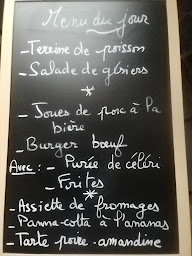 Menu du jour
- Terrine de poisson
- Salade de gésiers
*
- Joues de porc à la
bière
- Burger bœuf
Avec : - Purée de céléri
- Frites
*
- Assiette de fromages
- Panna-cotta à l'ananas
- Tarte poire-amandine